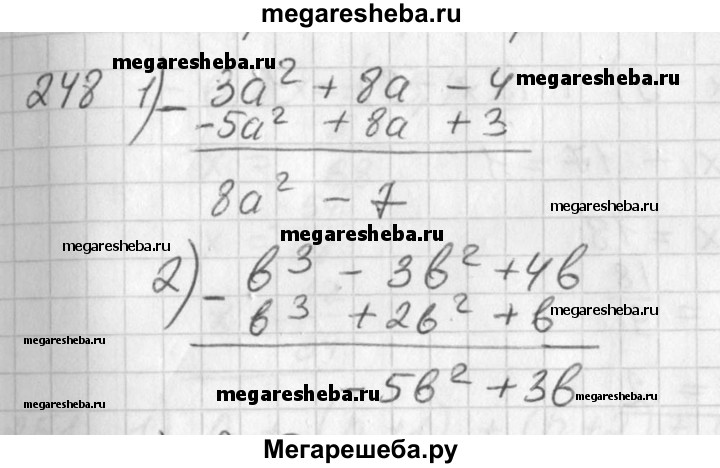 megaresheba.ru
megaresheba.ru
248 1) - 3a² + 8a - 4 megaresheba.ru
-5a² + 8a + 3
8a² - 7 megaresheba.ru
megaresheba.ru
megaresheba.ru
2) - b³ - 3b² + 4b
b³ + 2b² + b megaresheba.ru
megaresheba.ru
- 5b² + 3b
megaresheba.ru megaresheba.ru
megaresheba.ru
Мегарешеба.ру